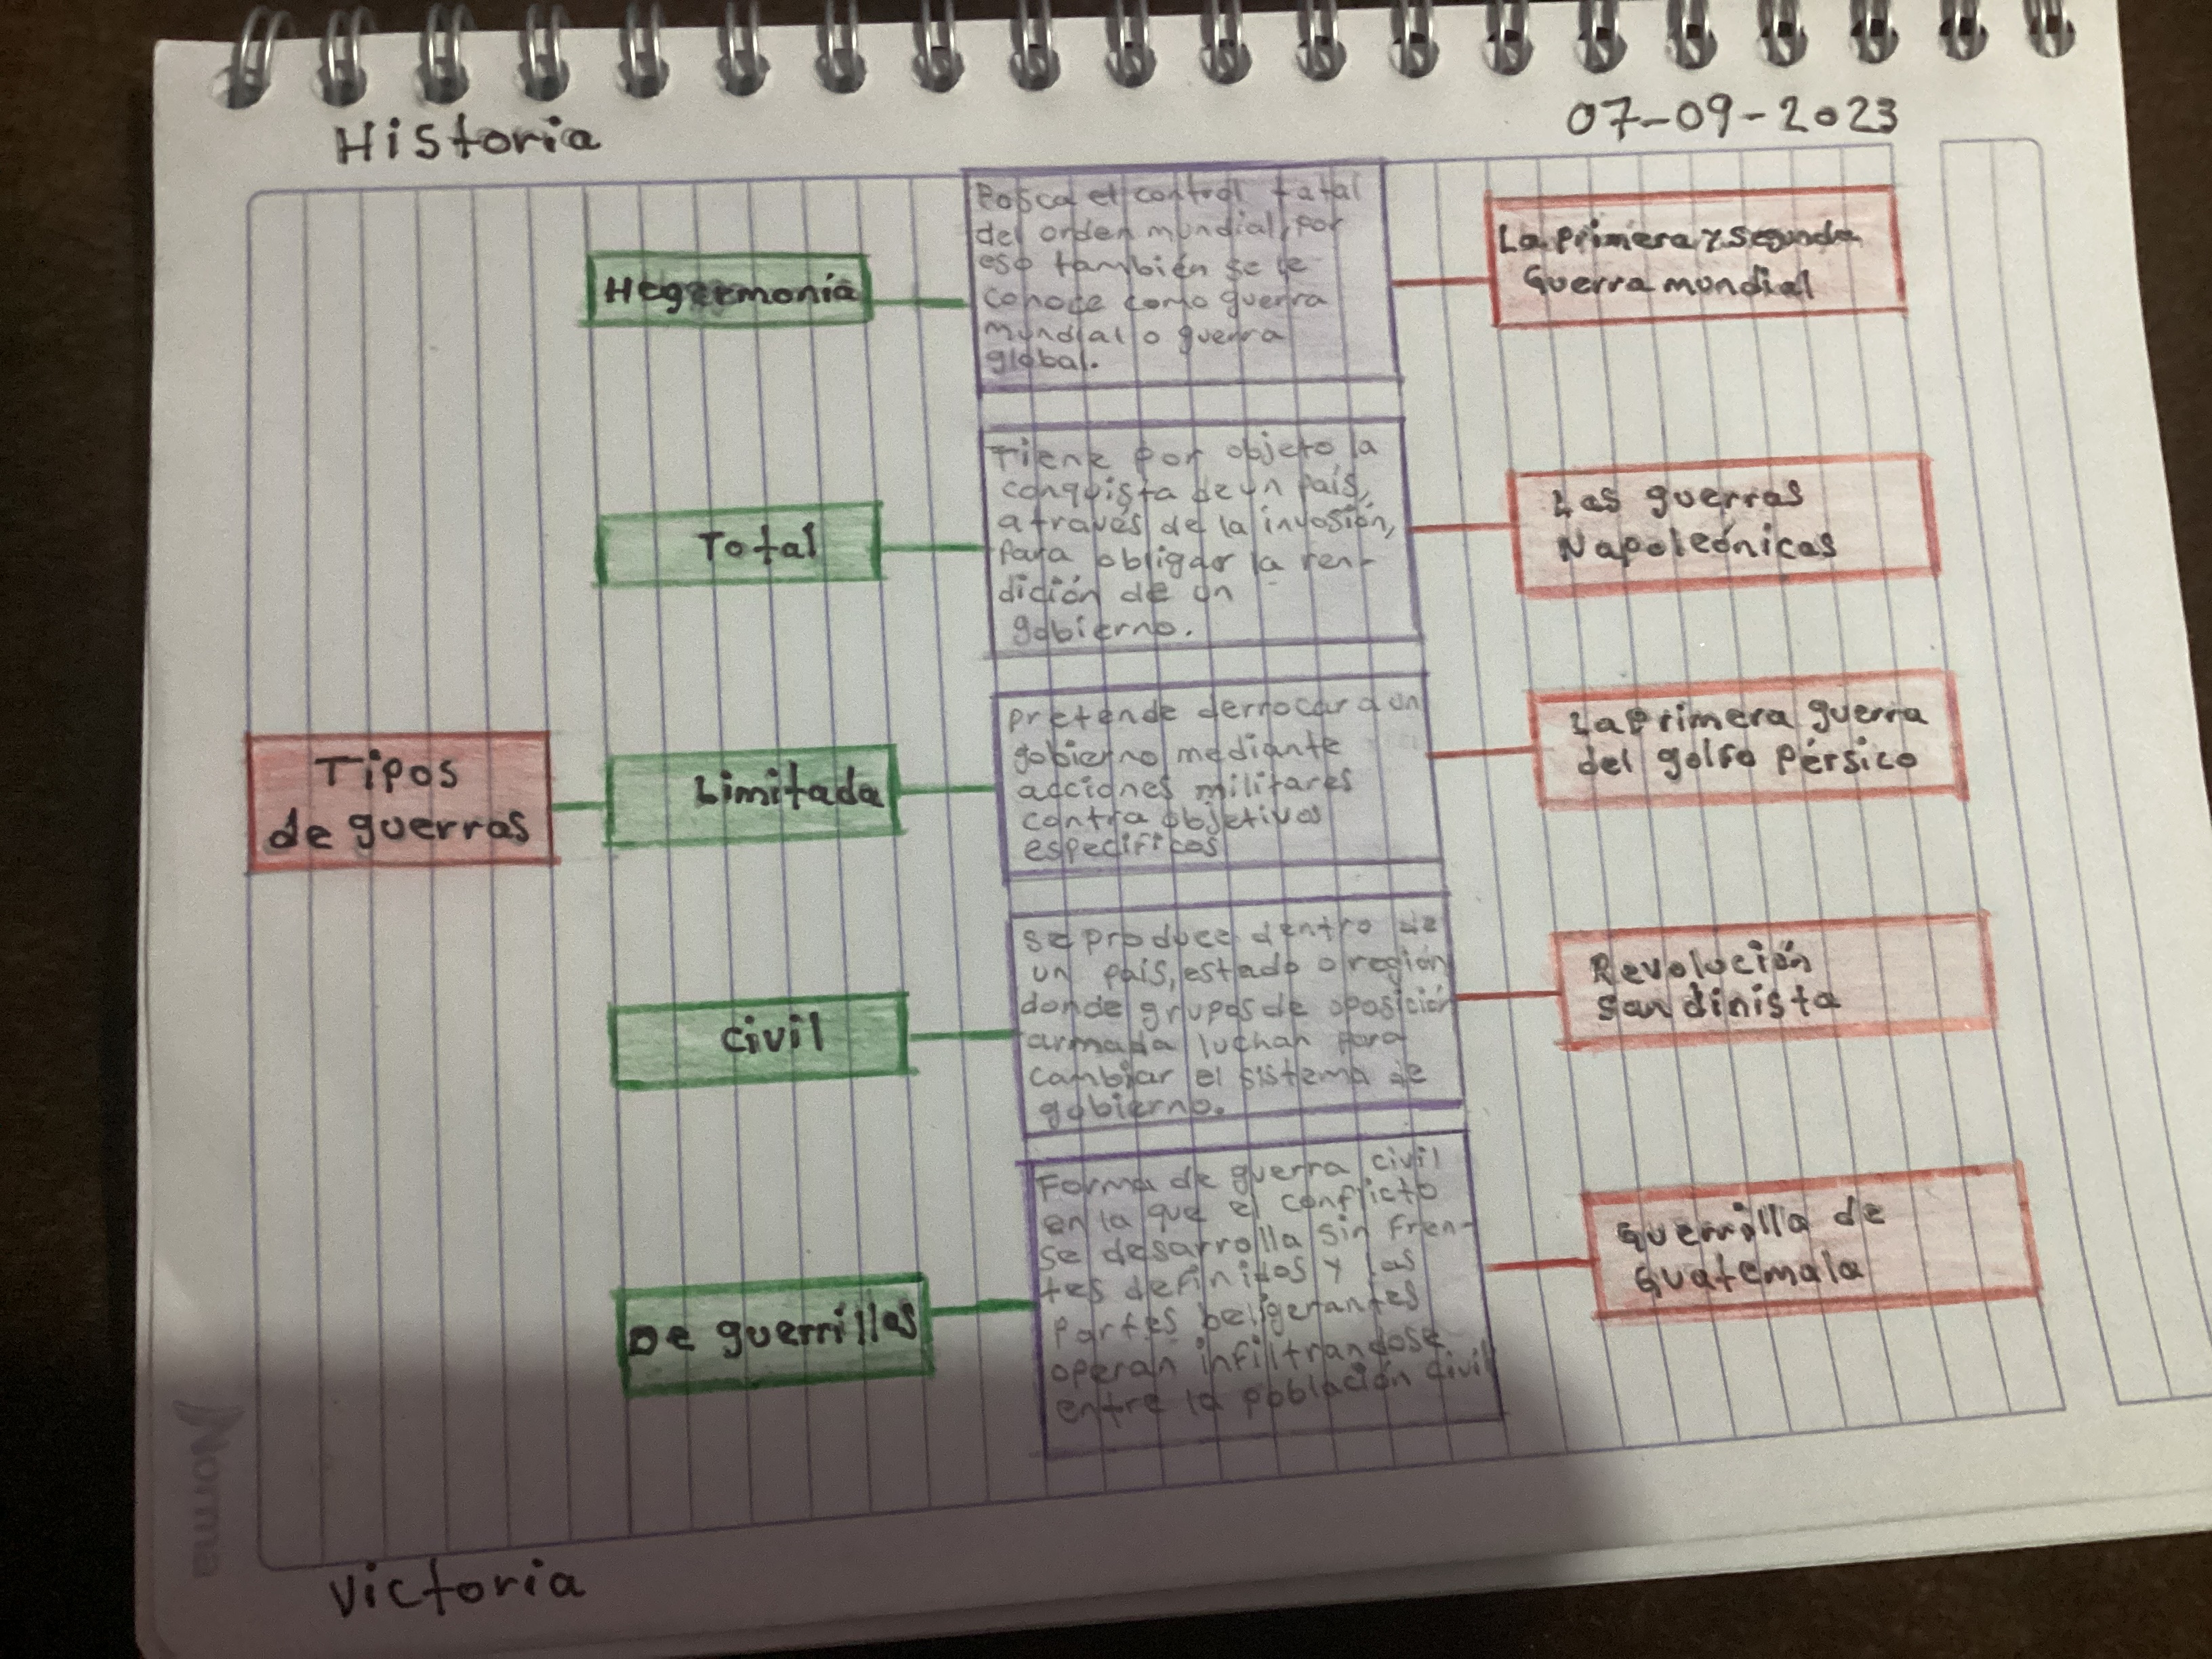 Historia
07-09-2023
Tipos
de guerras
Hegemonía
Bosca el control total
del orden mundial, por
eso también se le
conoce como guerra
mundial o guerra
global.
La primera y segunda
Guerra mundial
Total
Tiene por objeto la
conquista de un país,
a través de la invasión,
para obligar la ren-
dición de un
gobierno.
Las guerras
Napoleónicas
Limitada
pretende derrocar a un
gobierno mediante
acciones militares
contra objetivos
especificos
La primera guerra
del golfo Pérsico
civil
se produce dentro de
un país, estado o región
donde grupos de oposición
armada luchan para
cambiar el sistema de
gobierno.
Revolución
sandinista
De guerrillas
Forma de guerra civil
en la que el conflicto
se desarrolla sin fren-
tes definidos y las
partes beligerantes
operan infiltrandose
entre la población civil
Guerrilla de
Guatemala
Norma
Victoria